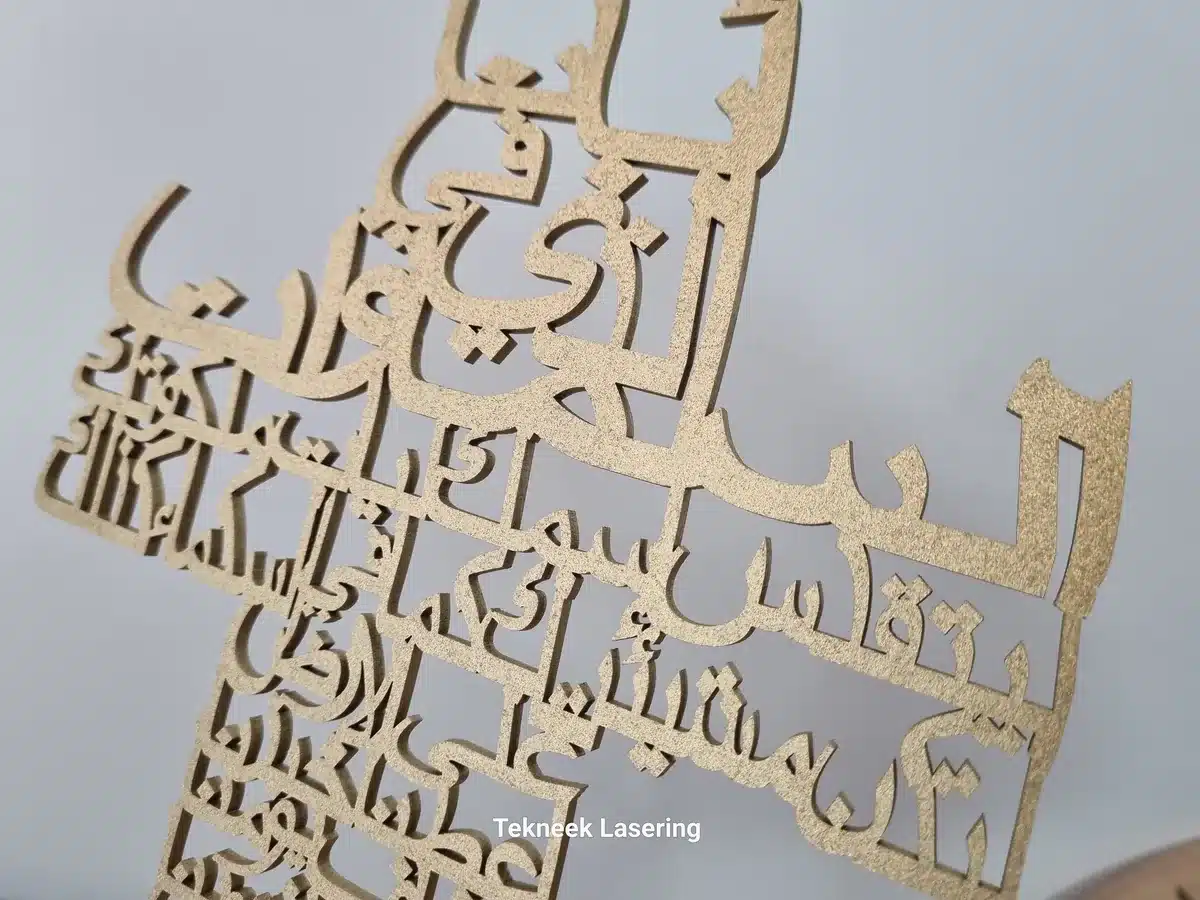 أبانا
الذي في
السماوات
ليتقدس اسمك ليأت ملكوتك
لتكن مشيئتك كما في السماء كذلك
على الأرض
أعطنا خبزنا
Tekneek Lasering